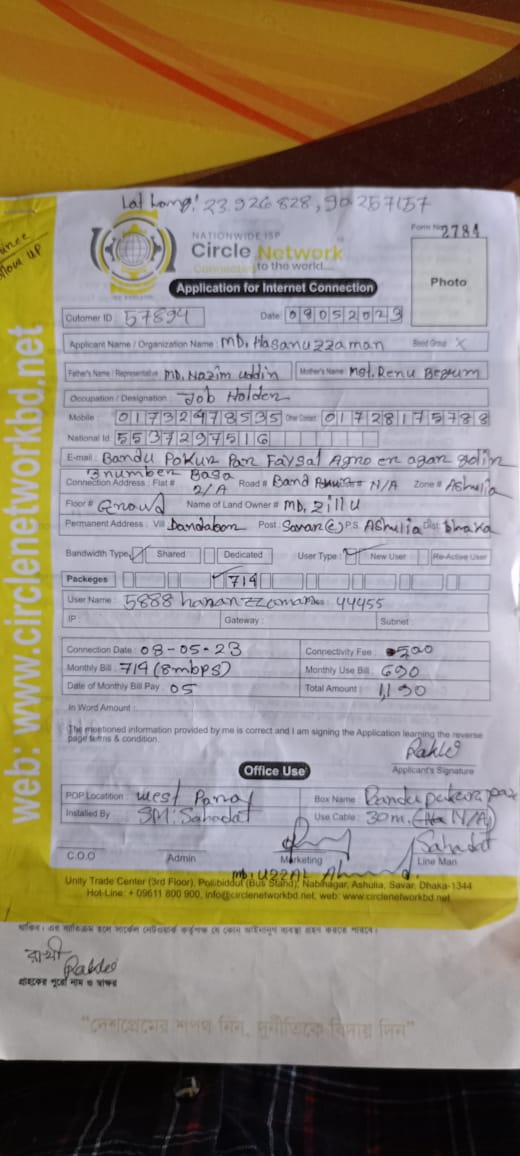 Lat Long: 23.926828, 90.257157
NATIONWIDE ISP
Circle Network
Connected to the world....
Form No 2784
Photo
Application for Internet Connection
Cutomer ID : 57894 Date: 09052023
Applicant Name / Organization Name : MD. Hasanuzzaman Blood Group : X
Father's Name / Representative MD. Nazim uddin Mother's Name : Mst. Renu Begum
Occupation / Designation : Job Holder
Mobile : 01732478535 Other Contact : 01728175788
National Id: 5537297516
E-mail : Bandu Pokur Par Faysal Agro er agar golir
3 number Basa
Connection Address : Flat # 2/A Road # Band N/A Zone # Ashulia
Floor # Ground Name of Land Owner # MD. Zillu
Permanent Address : Vill Dandabor Post : Savar P.S. Ashulia Dist. Dhaka
Bandwidth Type Shared Dedicated User Type : New User Re-Active User
Packeges 714
User Name : 5888 44455
IP : Gateway : Subnet :
Connection Date : 08-05-23 Connectivity Fee : 500
Monthly Bill : 714 (8mbps) Monthly Use Bill : 690
Date of Monthly Bill Pay : 05 Total Amount : 1,190
In Word Amount :
The mentioned information provided by me is correct and I am signing the Application learning the reverse
page terms & condition.
Applicant's Signature
Office Use
POP Locatition : West Box Name :
Installed By SM: Sahadat Use Cable : 30m. N/A
Sahadat
C.O.O Admin Marketing Line Man
Unity Trade Center (3rd Floor), Pollibiddut (Bus Stand), Nabinagar, Ashulia, Savar, Dhaka-1344
Hot-Line: + 09611 800 900, info@circlenetworkbd.net, web: www.circlenetworkbd.net
web: www.circlenetworkbd.net
রাখী
গ্রাহকের পুরো নাম ও স্বাক্ষর
"দেশপ্রেমের শপথ নিন, দুর্নীতিকে বিদায় দিন"